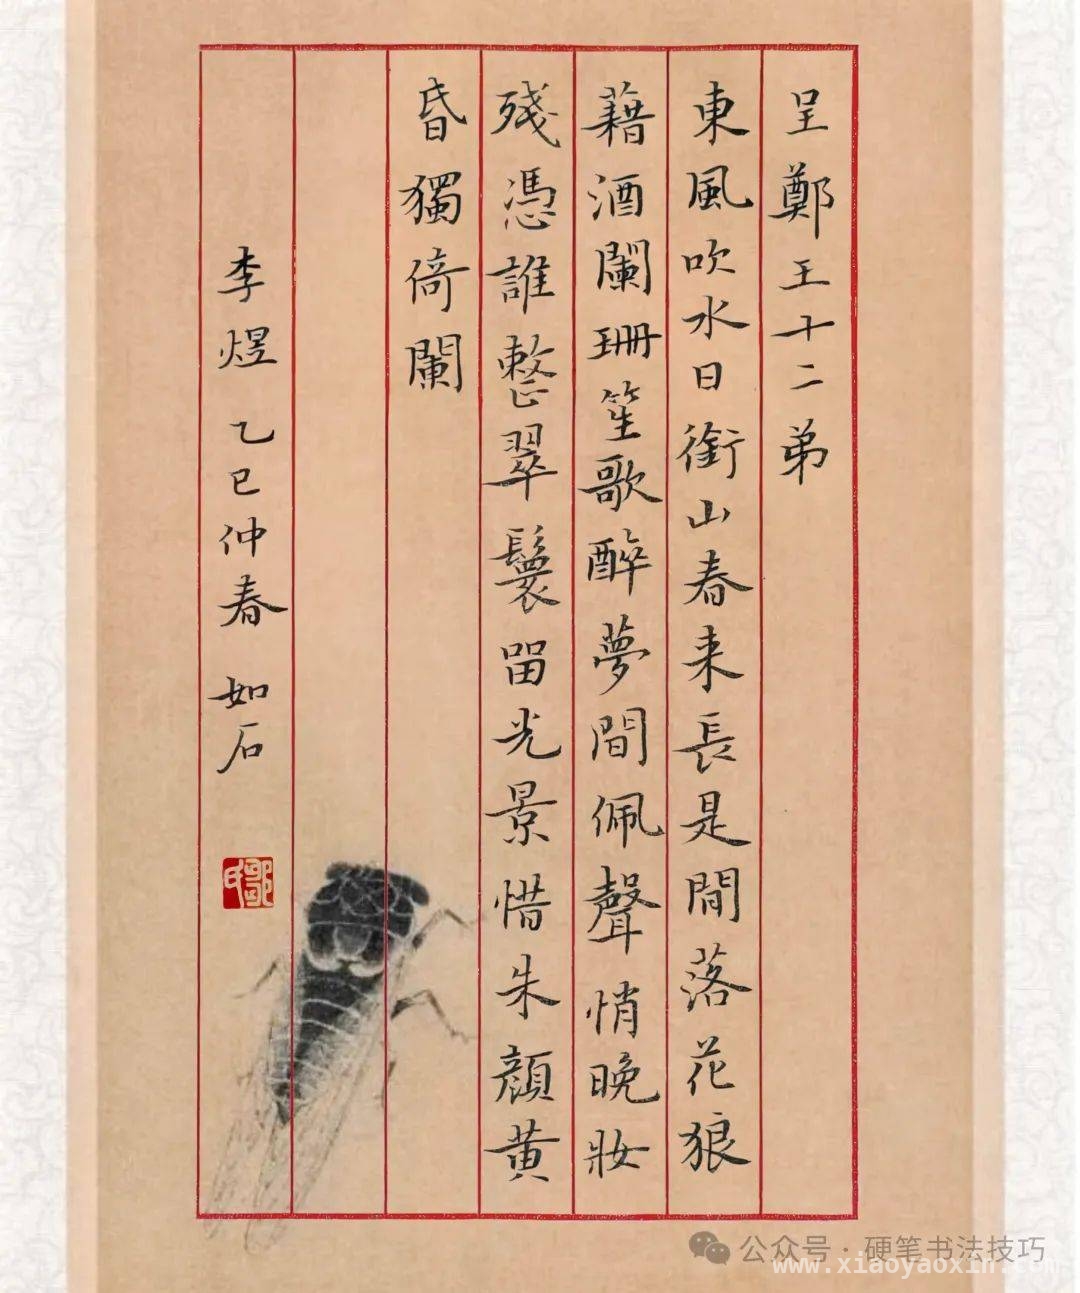 呈鄭王十二弟
東風吹水日銜山春来長是閒落花狼
藉酒闌珊笙歌醉夢間佩聲悄晚妝
殘憑誰整翠鬟留光景惜朱顏黄
昏獨倚闌
李煜 乙巳仲春 如石
鄒氏
公众号·硬笔书法技巧
www.xiaoyaoxin.com